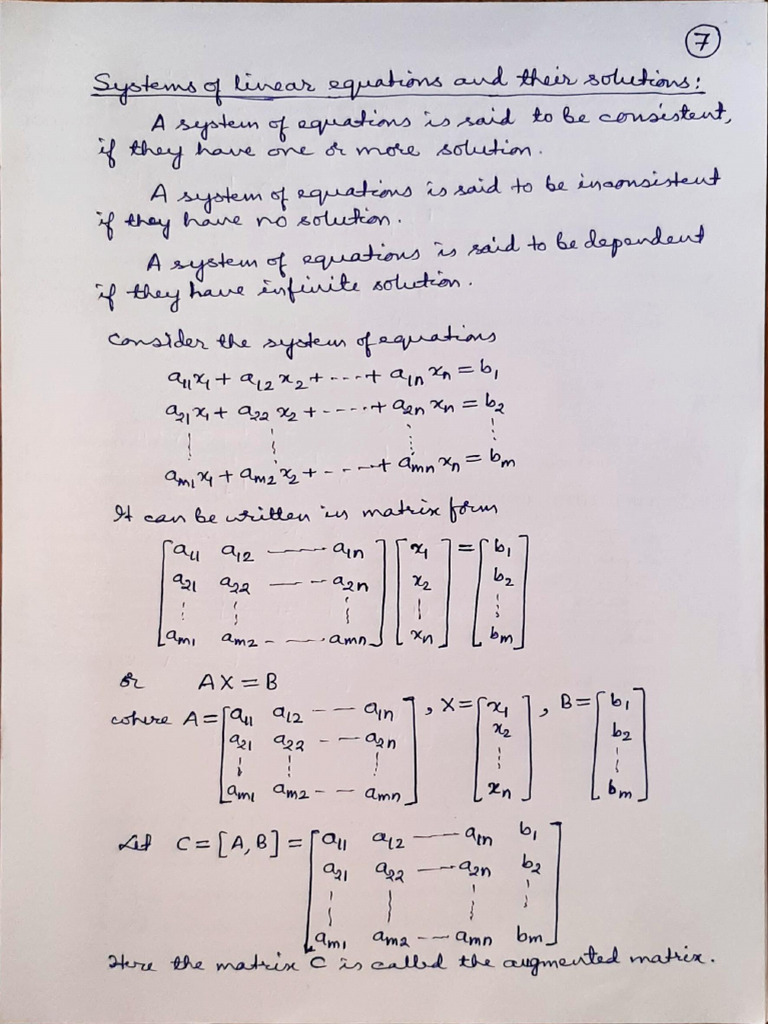 7
Systems of linear equations and their solutions:
A system of equations is said to be consistent,
if they have one or more solution.
A system of equations is said to be inconsistent
if they have no solution.
A system of equations is said to be dependent
if they have infinite solution.
Consider the system of equations
a₁₁x₁ + a₁₂x₂ + ---- + a₁ₙxₙ = b₁
a₂₁x₁ + a₂₂x₂ + ----- + a₂ₙxₙ = b₂
⋮ ⋮ ⋮ ⋮
aₘ₁x₁ + aₘ₂x₂ + ---- + aₘₙxₙ = bₘ
It can be written in matrix form
[a₁₁ a₁₂ —— a₁ₙ] [x₁] = [b₁]
[a₂₁ a₂₂ —-- a₂ₙ] [x₂] [b₂]
[⋮ ⋮ ⋮] [⋮] [⋮]
[aₘ₁ aₘ₂ ---- aₘₙ] [xₙ] [bₘ]
or AX = B
where A = [a₁₁ a₁₂ --- a₁ₙ], X = [x₁], B = [b₁]
[a₂₁ a₂₂ --- a₂ₙ] [x₂] [b₂]
[⋮ ⋮ ⋮] [⋮] [⋮]
[aₘ₁ aₘ₂ --- aₘₙ] [xₙ] [bₘ]
Let C = [A, B] = [a₁₁ a₁₂ —— a₁ₙ b₁]
[a₂₁ a₂₂ —— a₂ₙ b₂]
[⋮ ⋮ ⋮ ⋮]
[aₘ₁ aₘ₂ --- aₘₙ bₘ]
Here the matrix C is called the augmented matrix.